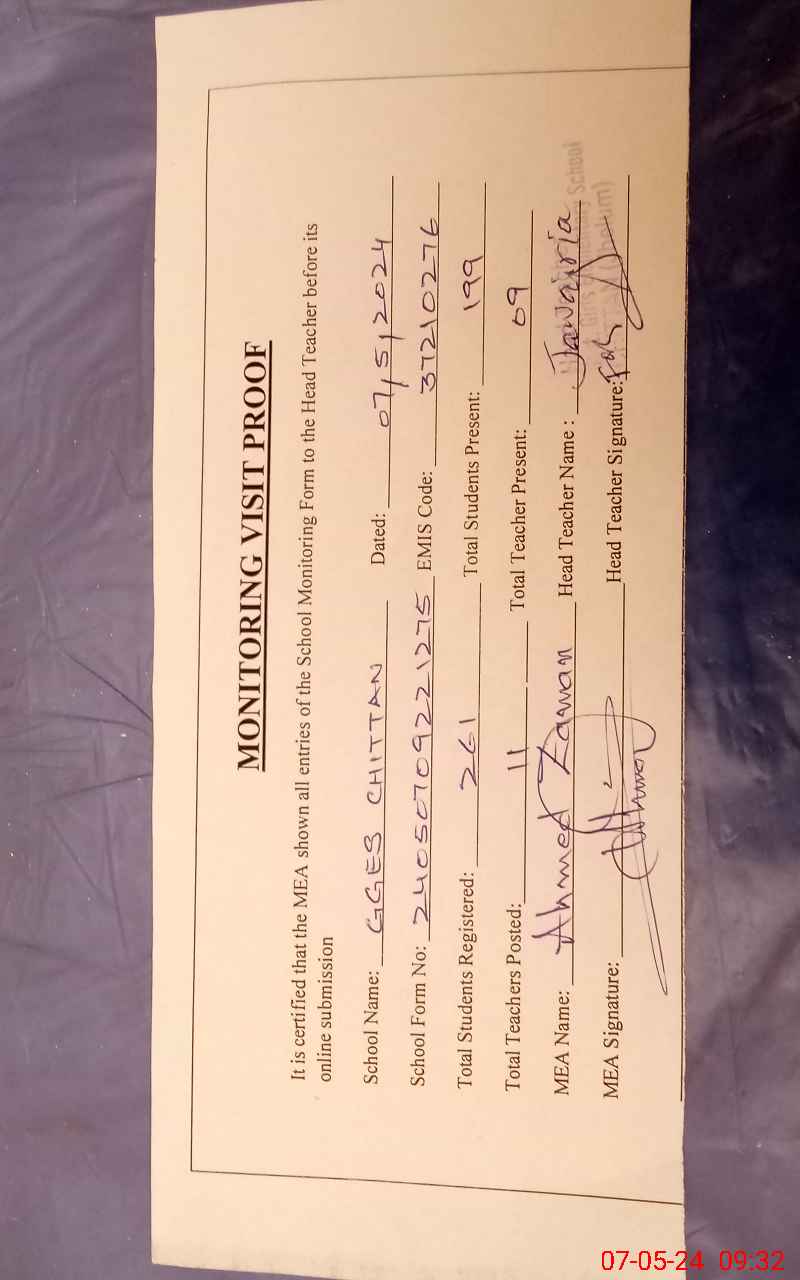 MONITORING VISIT PROOF
It is certified that the MEA shown all entries of the School Monitoring Form to the Head Teacher before its
online submission
School Name: GGES CHITTAN Dated: 07/5/2024
School Form No: 240507092221275 EMIS Code: 37210276
Total Students Registered: 261 Total Students Present: 199
Total Teachers Posted: 11 Total Teacher Present: 09
MEA Name: Ahmed Zaman Head Teacher Name : Jawairia
MEA Signature: Head Teacher Signature:
School
07-05-24 09:32